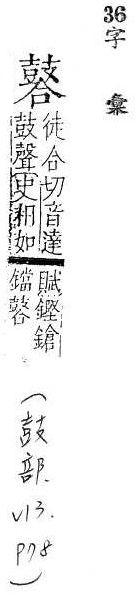 36 字彙
徒合切音達
鼓聲史相如
賦鏗鎗
鐺
(鼓部. V13. P78)